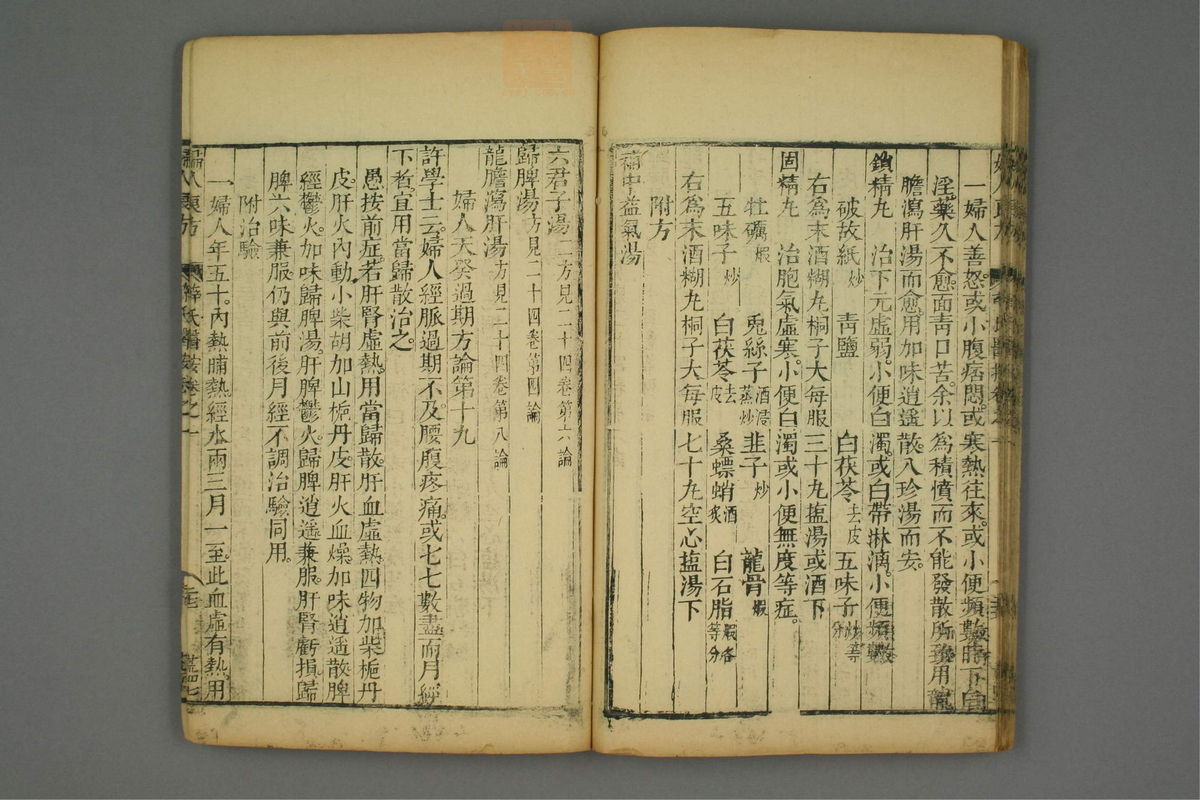 一婦人善怒或小腹痞悶或寒熱往來或小便頻數時下白
淫藥久不愈面青口苦余以為積憤而不能發散所致用龍
膽瀉肝湯而愈用加味逍遙散八珍湯而安
鎖精丸　治下元虛弱小便白濁或白帶淋漓小便頻數
破故紙炒　青鹽　白茯苓去皮　五味子炒等分
右為末酒糊丸桐子大每服三十丸塩湯或酒下
固精丸　治胞氣虛寒小便白濁或小便無度等症
牡礪煆　兎絲子酒浸蒸炒　韭子炒　龍骨煆
五味子炒　白茯苓去皮　桑螵蛸酒炙　白石脂煆各等分
右為末酒糊丸桐子大每服七十丸空心塩湯下
附方
補中益氣湯
六君子湯二方見二十四卷第六論
歸脾湯方見二十四卷第四論
龍膽瀉肝湯方見二十四卷第八論
婦人天癸過期方論第十九
許學士云婦人經脈過期不及腰腹疼痛或七七數盡而月經
下者宜用當歸散治之
愚按前症若肝腎虛熱用當歸散肝血虛熱四物加柴梔丹
皮肝火內動小柴胡加山梔丹皮肝火血燥加味逍遙散脾
經鬱火加味歸脾湯肝脾鬱火歸脾逍遙兼服肝腎虧損歸
脾六味兼服仍與前後月經不調治驗同用
附治驗
一婦人年五十內熱晡熱經水兩三月一至此血虛有熱用
婦人良方